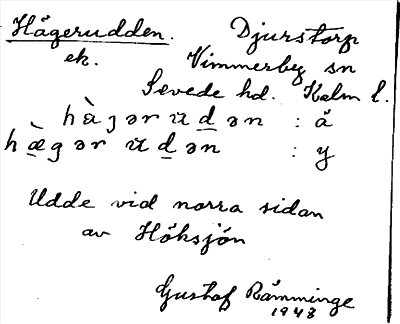 Hägerudden. Djurstorp
ek. Vimmerby sn
Sevede hd. Kalm l.
hàgərudən : å
hæ̀gərudən : y
Udde vid norra sidan
av Höksjön
Gustaf Rämminge
1943